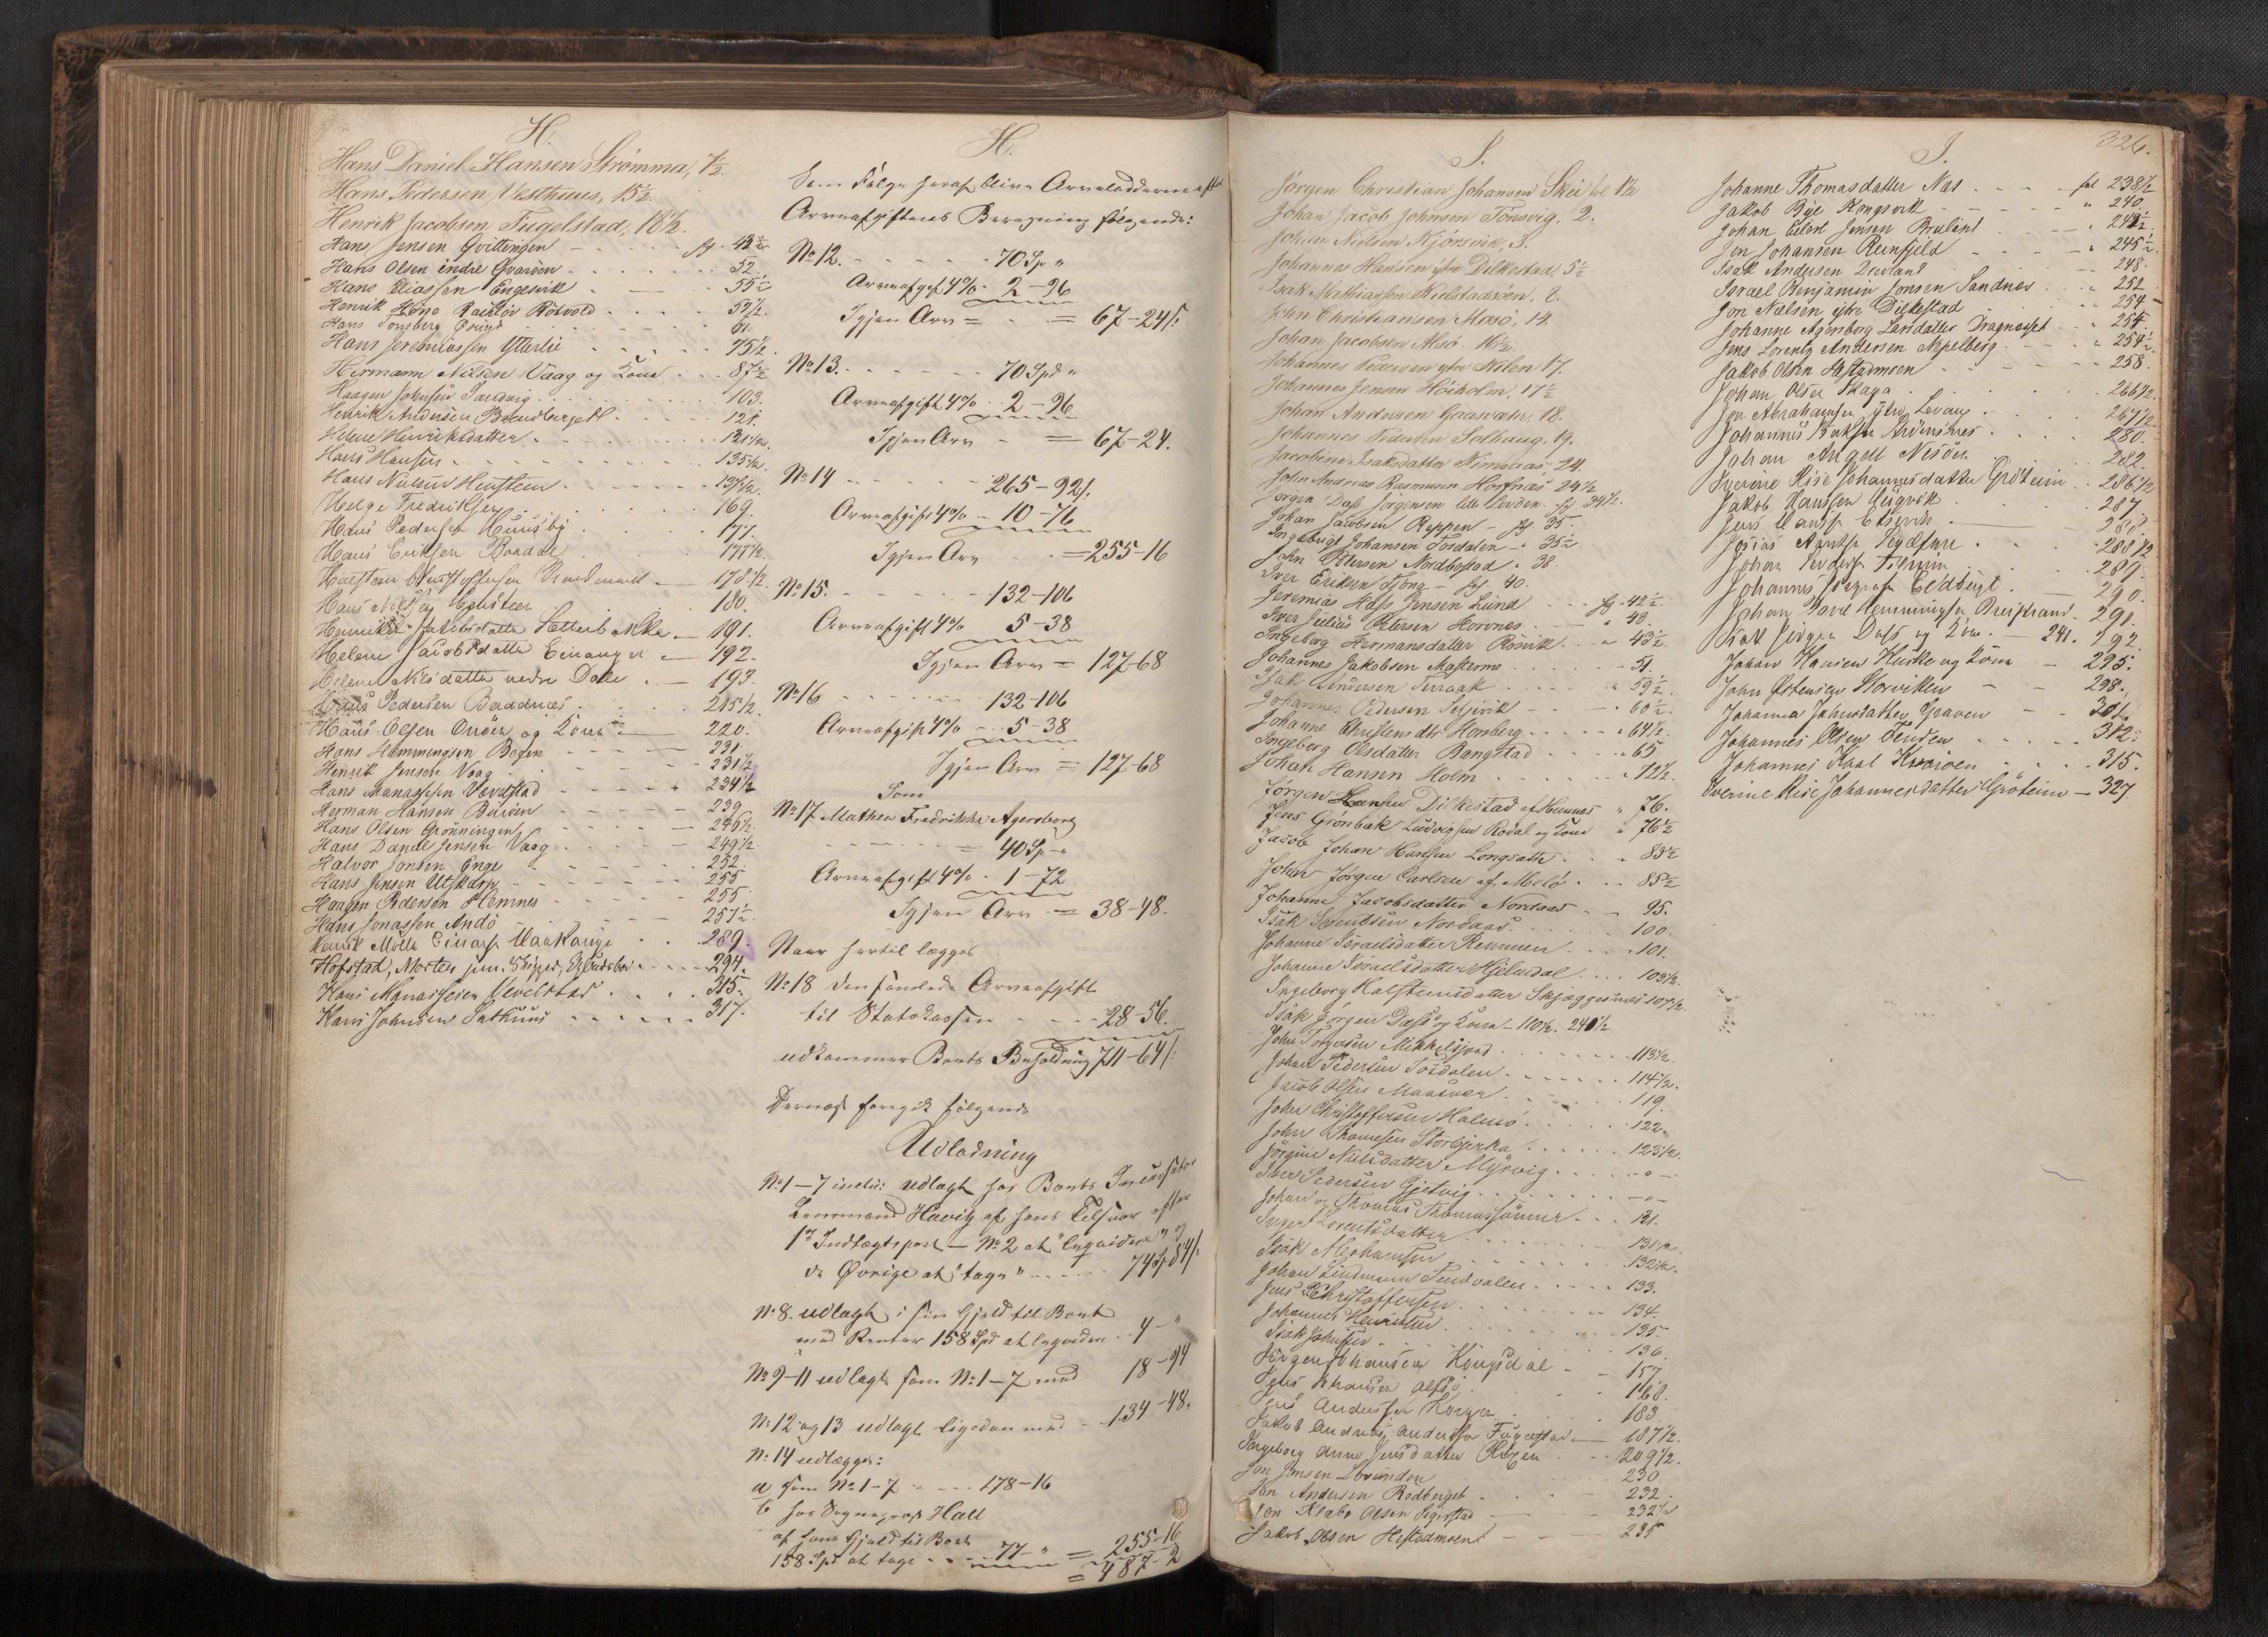 H.
Hans Daniel Hansen Strømma, 7½.
Hans Pedersen Vesthuus, 15½.
Henrik Jacobsen Fugelstad, 18½.
Hans Jensen Qvittingen fol. 42½
Hans Olsen indre Qvarøen 52
Hans Eliassen Engesvik 55½
Henrik Røtvold 59½.
Hans Tønsberg 61.
Hans Jeremiassen Ytterlie 75½.
Hermann Nilsen Vaag og Kone 87½
Haagen Johnsen Sandvig 103.
Henrik Andersen Brendberget 121.
Helene Henriksdatter 121½.
Hans Hansen 135½.
Hans Nilsen
Helge Fredriksen 169.
Hans Pedersen Huusby 177.
Hans Eriksen Bondal 177½
Kristoffersen 178½.
Hans 180.
Jakobsdatter Sletterbakke 191.
Helene Jacobsdatter 192.
Helene Nilsdatter nedre Dale 193.
Hans Pedersen 215½.
Hans Olsen Onøen og Kone 220.
Hans Hemmingsen Bogen 231
Henrik Jensen Vaag 231½
Hans Manassesen Vevelstad 234½
Herman Hansen Buøien 239
Hans Olsen Grønningen 246½
Hans Daniel Jensen Vaag 249½
Halvor Jonsen Enge 252
Hans Jensen Utskarp 255
Haagen Pedersen Hemnes 255
Hans Jonassen Andø 257½
Henrik Møller 289.
Hofstad, Morten jun. Skipper, 294.
Hans Manassesen Vevelstad 315.
Hans Johnsen Sathuus 317.
H.
Som Følge heraf blive Arvelodderne efter
Arveafgiftens Beregning følgende:
No 12. 70 Sp "
Arveafgift 4% 2-96
Igjen Arv = 67-24 /:
No 13. 70 Spd "
Arveafgift 4% 2-96
Igjen Arv = 67-24.
No 14 265-92 /.
Arveafgift 4% 10-76
Igjen Arv = 255-16
No 15. 132-106
Arveafgift 4% 5-38
Igjen Arv = 127-68
No 16 132-106
Arveafgift 4% 5-38
Igjen Arv = 127-68
Som
No 17 Mathea Fredrikke Agersborg
= 40 Sp "
Arveafgift 4% 1-72
Igjen Arv = 38-48.
Naar hertil lægges
No 18 den samlede Arveafgift
til Statskassen 28-56.
udkommer Boets Beholdning 711-64 /:
Dernæst foregik følgende
Udlodning
No 1-7 inclu: udlagt hos Boets Incassator
Lensmand Havig af hans Tilsvar efter
1ste Indtægtspost - No 2 at "liqvidere" og
de Øvrige at "tage" 74 Sp 84 /:
No 8. udlagt i sin Gjæld til Boet
med Renter 158 Spd at liqvidere 4- "
No 9-11 udlagt som No 1-7 med 18-94
No 12 og 13 udlagt ligedan med 134-48.
No 14 udlægges:
a som No 1-7 178-16
b hos Sogneprest Hall
af hans Gjæld til Boet
158 Spd at tage 77- " = 255-16
= 487-2
J.
Jørgen Christian Johansen Skei fol 1½
Johan Jacob Johnsen Tønsvig, 2.
Johan Nielsen Njønsvik, 3.
Johannes Hansen ytre Dilkestad, 5½
Isak Mathiassen Kielstadøen, 8.
John Christiansen Masø, 14.
Johan Jacobsen Alsø. 16½.
Johannes Pedersen ytre Kilen 17.
Johannes Jensen Høiholm, 17½
Johan Andersen Gaasvær, 18.
Johannes Pedersen Solhaug, 19.
Jacobine Isaksdatter Nimsaas, 24.
John Andreas Rasmusen Horfnæs 24½
Jørgen Dass Jørgensen lille Lovden. fol 34½.
Johan Jacobsen Reppen - fol. 35.
Ingebrigt Johansen Tosdalen - " 35½.
John Petersen Nordbostad " 38.
Iver Eriksen Tjong - fol. 40.
Jeremias Hass Jensen Lund fol. 42½
Iver Julius Petersen Hovnes " 43.
Ingeborg Hermansdatter Røsvik " 43½.
Johannes Jakobsen Masterno 51.
Isak Andersen Terraak " 59½
Johannes Pedersen Seljevik 60½.
Johanne Christensdtr Hornberg " 64½
Ingeborg Olsdatter Bangstad " 65
Johan Hansen Holm " 72½.
Jørgen Hansen Dilkestad af Hemnæs " 76.
Jens Grønbæk Ludvigsen Rødal og Kone " 76½
Jacob Johan Hansen Longsæth " 83½
John Jørgen Carlsen af Melø 85½
Johanne Jacobsdatter Nordaas 95.
Isak Nordaas 100.
Johanne Israelsdatter Remmen 101.
Johanne Israelsdatter Hjelmdal 103½.
Ingeborg Halstensdatter Skjæggesnæs 107½.
Isak Jørgen Dass og Kone - 110½. 240½
John Torgersen Mikkelsjord 113½.
Johan Pedersen Tosdalen 114½.
Jacob Olsen Maasvær 119.
John Christoffersen Halmø 122.
John Thomesen Storbjerka 123½.
Jørgine Nilsdatter Myrvig - " -
Iver Pedersen Gjetvig - " -
Johan og Thomas Thomassønner 131.
Inger Lorentsdatter 131½.
Isak Abrahamsen 132½.
Johan Lindmann Sundvalen 133.
Jens Christoffersen 134.
Johannes Henriksen 135.
Isak Johnsen 136.
Jørgen Johansen Kongsdal 157
Jens Johansen Alfsø 168.
Jens Anderssen Korgen 183.
Jakob Andreas Anderssen Fugelstad 187½.
Ingeborg Anne Jensdatter Okgen 209½.
Jon Jensen Lovunden 230.
Jon Andersen Rødberget 232.
Jon Klabo Olsen Segerstad 232½
Jakob Olsen Hestadmoen 235
J.
326.
Johanne Thomasdatter Næs fol 238½
Jakob Bye Kongsvik " 240.
Johan Eilert Jensen Breiland " 242½
Jon Johansen Reinfjeld " 245½
Isak Andersen Drevland 248.
Israel Benjamin Jonsen Sandnes " 252
Jon Nielsen ytre Dilkestad 254
Johanne Agersborg Larsdatter Dragnesset 254.
Jens Lorentz Andersen Nepelberg " 254½
Jakob Olsen Hestadmoen 258.
Johan Olsen Skaga 266½.
Jon Abrahamsen ytre Levang 267½.
Johannes 280.
Johan Angell Nesøen 282.
Iverine Rise Johannesdatter Grøteim 286½
Jakob Hanssen 287.
Jens 288.
Josias 288½
Johan 289.
Johannes 290.
Johan 291.
Isak Jørgen Dass og Kone 241. 292.
Johan Hansen Huske og Kone 295.
John Østensen Storvikken 298.
Johanna Johnsdatter Graven 301.
Johannes Olsen Tenden 312.
Johannes Karl Kvarøen 315.
Iverine Rise Johannesdatter Grøteim 327